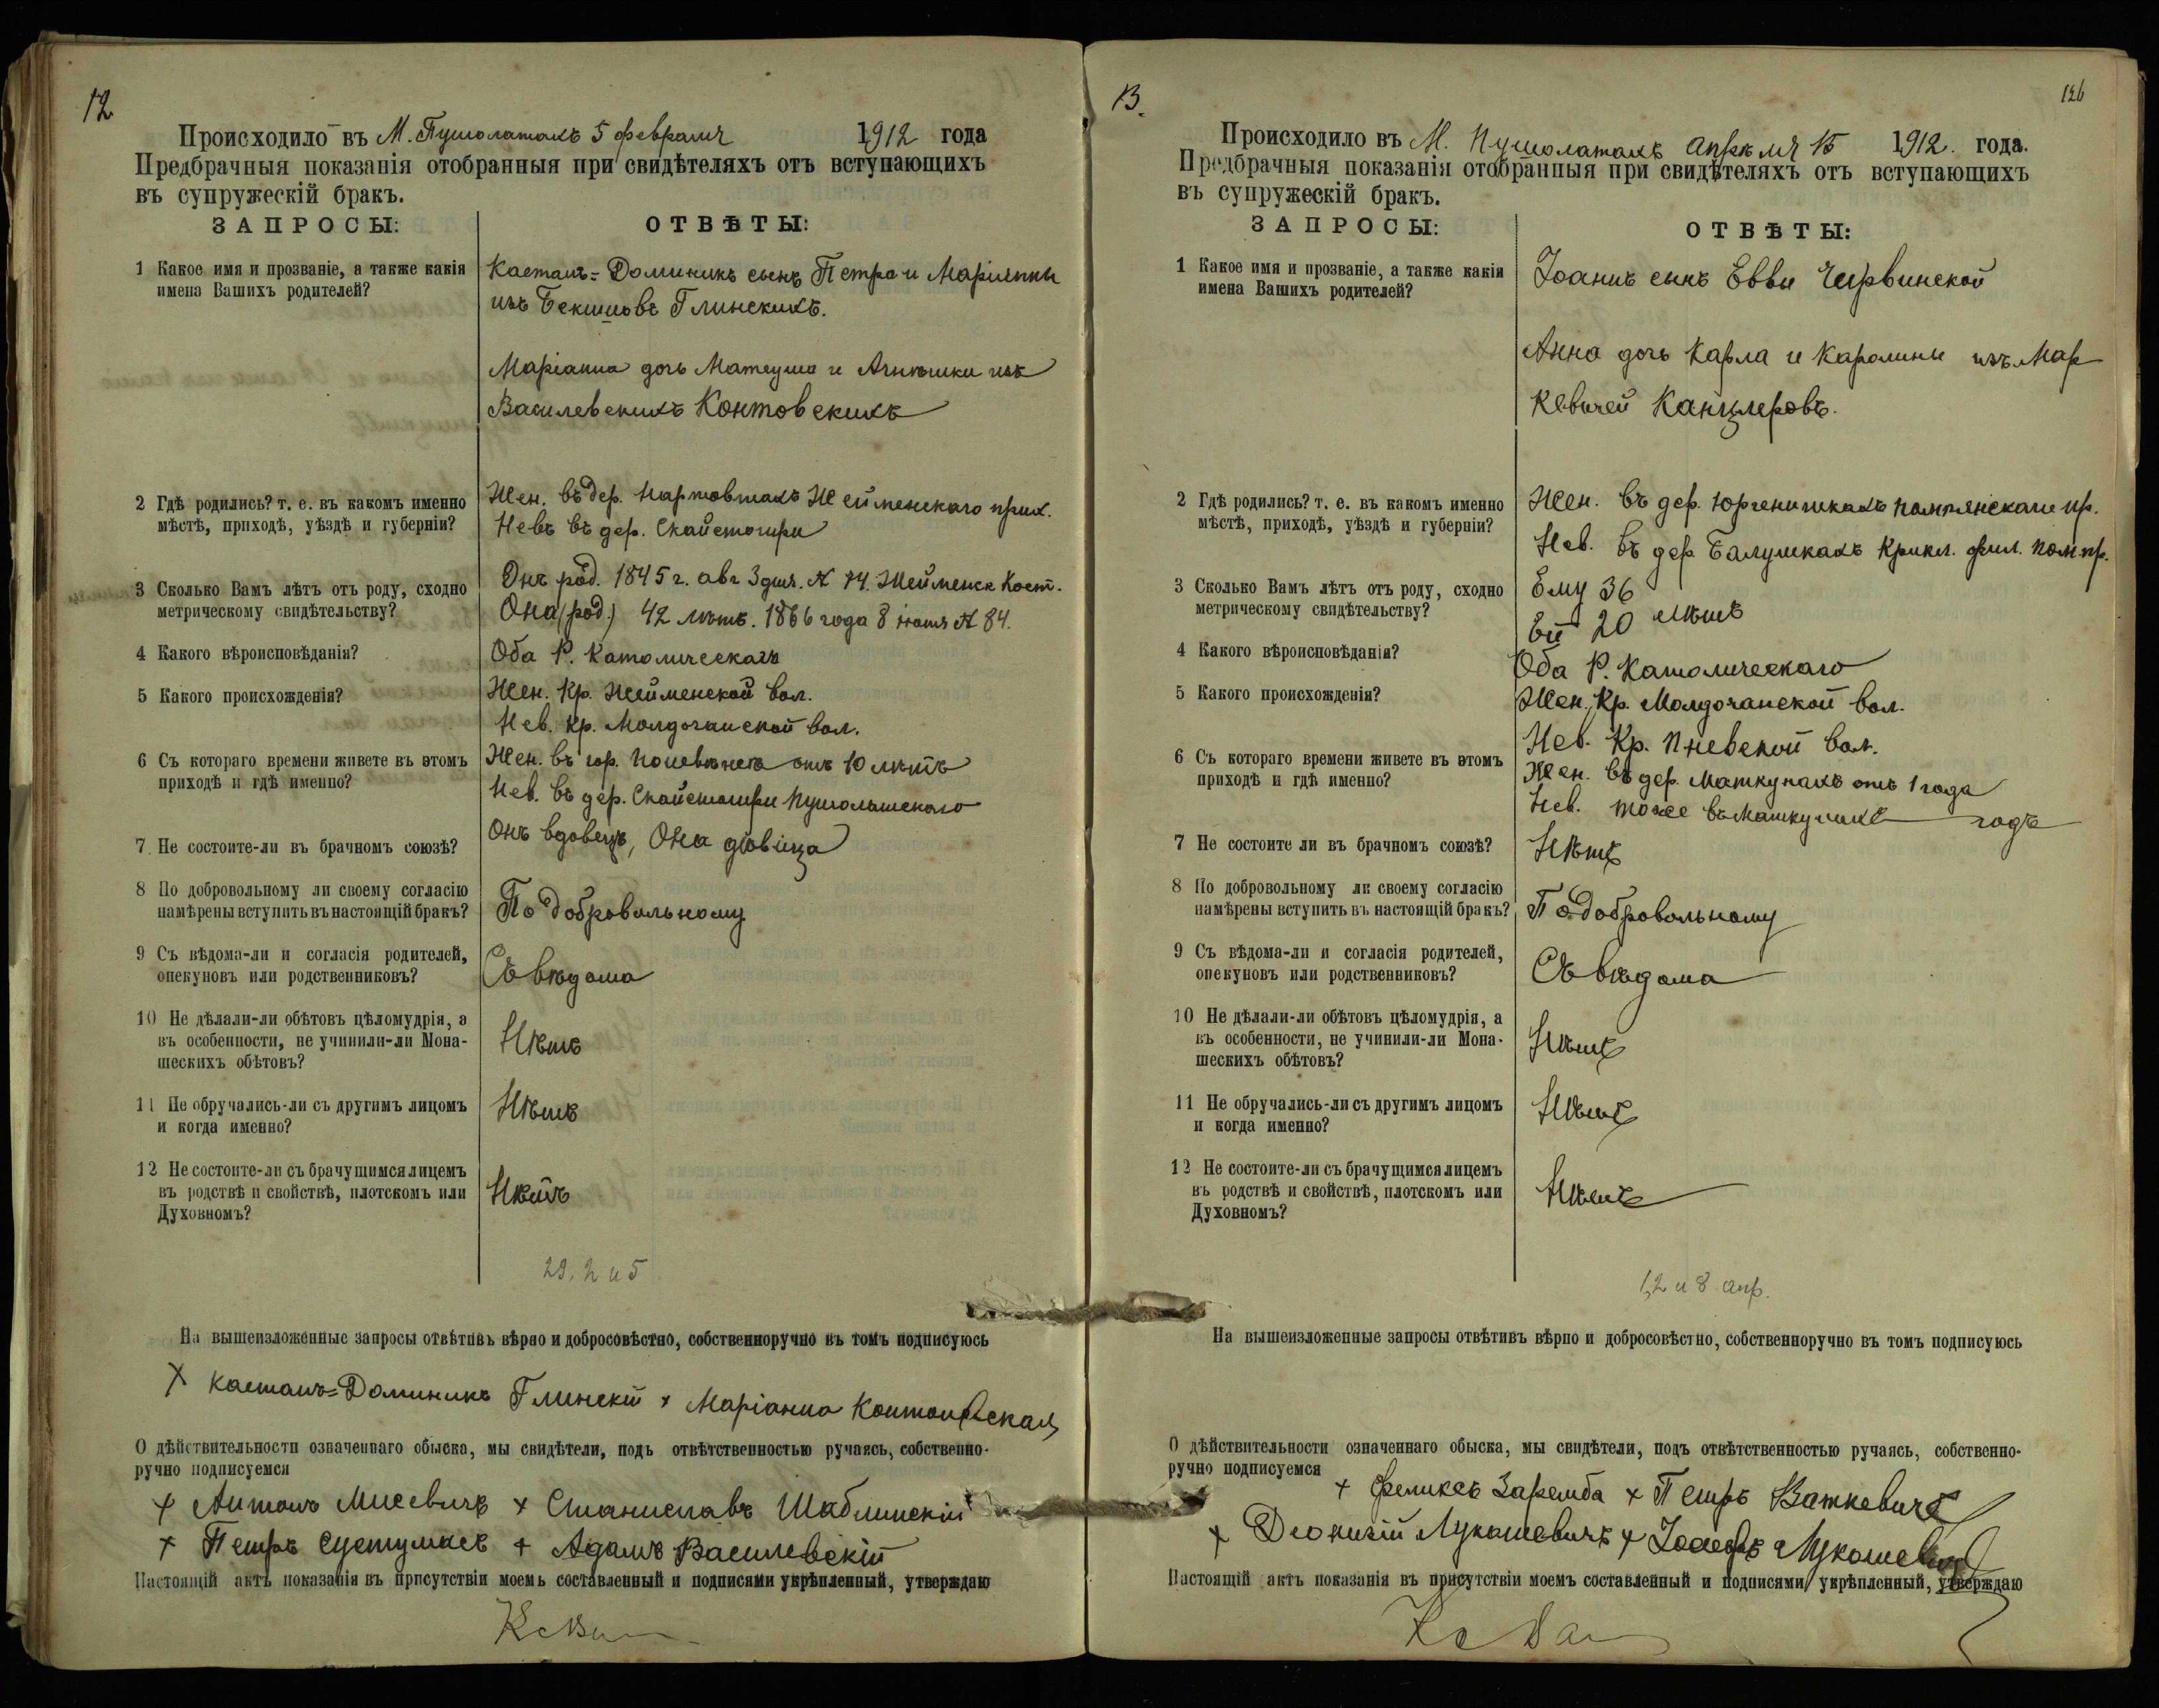 12
Происходило въ М. Пушолатахъ 5 февраля 1912 года
Предбрачныя показанія отобранныя при свидѣтеляхъ отъ вступающихъ
въ супружескій бракъ.
ЗАПРОСЫ:
ОТВѢТЫ:
1 Какое имя и прозваніе, а также какія
имена Вашихъ родителей?
Каетанъ=Доминикъ сынъ Петра и Маріянны
изъ Глинскихъ.
Маріанна дочь Матеуша и Агнѣшки изъ
Василевскихъ Контовскихъ
2 Гдѣ родились? т. е. въ какомъ именно
мѣстѣ, приходѣ, уѣздѣ и губерніи?
Жен. въ дер. Жейменскаго прих.
Нев. въ дер. Скайстогири
3 Сколько Вамъ лѣтъ отъ роду, сходно
метрическому свидѣтельству?
Онъ род. 1845 г. авг 3 дня. № 74. Жейменск Кост.
Она (род.) 42 лѣтъ. 1866 года 8 № 84.
4 Какого вѣроисповѣданія?
Оба Р. Католическаго
5 Какого происхожденія?
Жен. Кр. Жейменской вол.
Нев. Кр. Молдочанской вол.
6 Съ котораго времени живете въ этомъ
приходѣ и гдѣ именно?
Жен. въ гор. Поневѣжѣ отъ 10 лѣтъ
Нев. въ дер. Скайстогири Пушолатскаго
7 Не состоите-ли въ брачномъ союзѣ?
Онъ вдовецъ, Она дѣвица
8 По добровольному ли своему согласію
намѣрены вступить въ настоящій бракъ?
По добровольному
9 Съ вѣдома-ли и согласія родителей,
опекуновъ или родственниковъ?
Съ вѣдома
10 Не дѣлали-ли обѣтовъ цѣломудрія, а
въ особенности, не учинили-ли Мона-
шескихъ обѣтовъ?
Нѣтъ
11 Не обручались-ли съ другимъ лицомъ
и когда именно?
Нѣтъ
12 Не состоите-ли съ брачущимся лицемъ
въ родствѣ и свойствѣ, плотскомъ или
Духовномъ?
Нѣтъ
29, 2 и 5
На вышеизложенные запросы отвѣтивъ вѣрно и добросовѣстно, собственноручно въ томъ подписуюсь
× Каетанъ=Доминикъ Глинскій × Маріанна Контовская
О дѣйствительности означеннаго обыска, мы свидѣтели, подъ отвѣтственностью ручаясь, собственно-
ручно подписуемся
× Антонъ Мисевичъ × Станиславъ Шаблинскій
× Петръ + Адамъ Василевскій
Настоящій актъ показанія въ присутствіи моемъ составленный и подписями укрѣпленный, утверждаю
13.
126
Происходило въ М. Пушолатахъ Апрѣля 15 1912. года.
Предбрачныя показанія отобранныя при свидѣтеляхъ отъ вступающихъ
въ супружескій бракъ.
ЗАПРОСЫ:
ОТВѢТЫ:
1 Какое имя и прозваніе, а также какія
имена Вашихъ родителей?
Іоаннъ сынъ Еввы Червинской
Анна дочь Карла и Каролины изъ Мар
кевичей Канцлеровъ.
2 Гдѣ родились? т. е. въ какомъ именно
мѣстѣ, приходѣ, уѣздѣ и губерніи?
Жен. въ дер. Юргенишкахъ пр.
Нев. въ дер. Балушкахъ Крикл. фил. Помп. пр.
3 Сколько Вамъ лѣтъ отъ роду, сходно
метрическому свидѣтельству?
Ему 36
Ей 20 лѣтъ
4 Какого вѣроисповѣданія?
Оба Р. Католическаго
5 Какого происхожденія?
Жен. Кр. Молдочанской вол.
Нев. Кр. Пневской вол.
6 Съ котораго времени живете въ этомъ
приходѣ и гдѣ именно?
Жен. въ дер. Маткунахъ отъ 1 года
Нев. тоже въ Маткунахъ годъ
7 Не состоите ли въ брачномъ союзѣ?
Нѣтъ
8 По добровольному ли своему согласію
намѣрены вступить въ настоящій бракъ?
По добровольному
9 Съ вѣдома-ли и согласія родителей,
опекуновъ или родственниковъ?
Съ вѣдома
10 Не дѣлали-ли обѣтовъ цѣломудрія, а
въ особенности, не учинили-ли Мона-
шескихъ обѣтовъ?
Нѣтъ
11 Не обручались-ли съ другимъ лицомъ
и когда именно?
Нѣтъ
12 Не состоите-ли съ брачущимся лицемъ
въ родствѣ и свойствѣ, плотскомъ или
Духовномъ?
Нѣтъ
1, 2 и 8 апр.
На вышеизложенные запросы отвѣтивъ вѣрно и добросовѣстно, собственноручно въ томъ подписуюсь
О дѣйствительности означеннаго обыска, мы свидѣтели, подъ отвѣтственностью ручаясь, собственно-
ручно подписуемся
+ Феликсъ Заремба × Петръ Ваткевичъ
× Діонизій Лукашевичъ × Іосифъ Лукашевичъ
Настоящій актъ показанія въ присутствіи моемъ составленный и подписями укрѣпленный, утверждаю